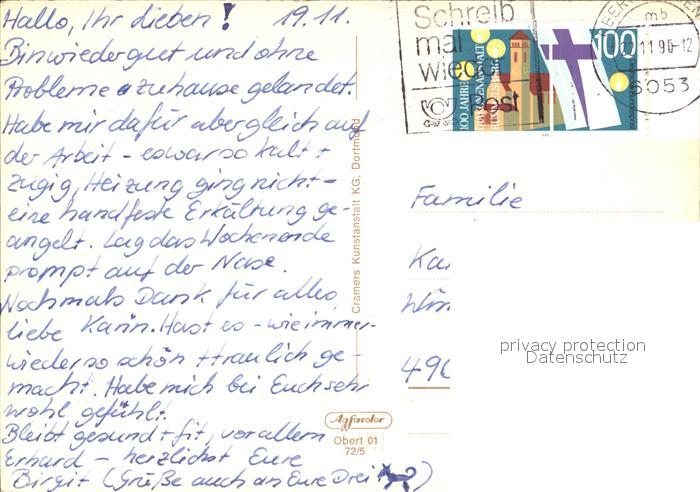 Hallo, Ihr dieben! 19.11.
Bin wieder gut und ohne
Probleme zuhause gelandet.
Habe mir dafür aber gleich auf
der Arbeit - es war so kalt +
zugig, Heizung ging nicht -
eine handfeste Erkältung ge-
angelt. Lag das Wochenende
prompt auf der Nase.
Nochmals Dank für alles,
liebe Karin. Hast es - wie immer -
wieder so schön + traulich ge-
macht. Habe mich bei Euch sehr
wohl gefühlt.
Bleibt gesund + fit, vor allem
Erhard - herzlichst Eure
Birgit (Grüße auch an Eure Drei)
Cramers Kunstanstalt KG. Dortmund
Agfacolor
Obert 01
72/5
Schreib
mal
wieder
Post
100 JAHRE
100
mb
11.90-12
6053
Familie
Ka
490
privacy protection
Datenschutz